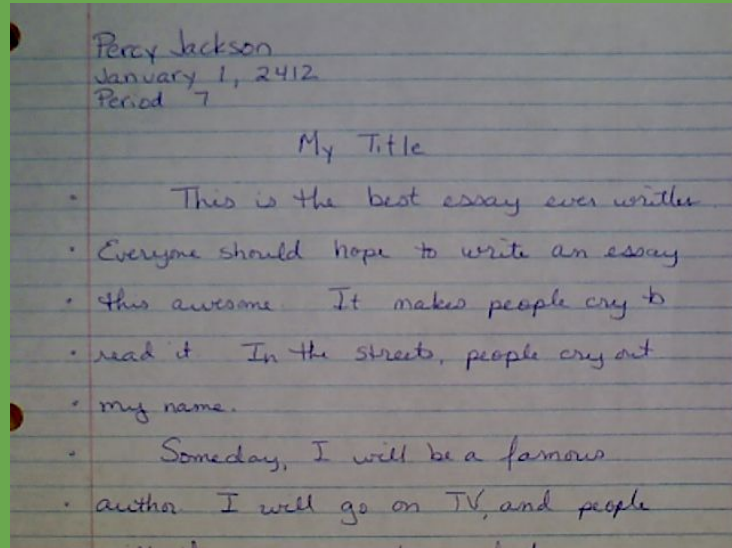 Percy Jackson
January 1, 2412
Period 7
My Title
This is the best essay ever written.
Everyone should hope to write an essay
this awesome. It makes people cry to
read it. In the streets, people cry out
my name.
Someday, I will be a famous
author. I will go on TV, and people